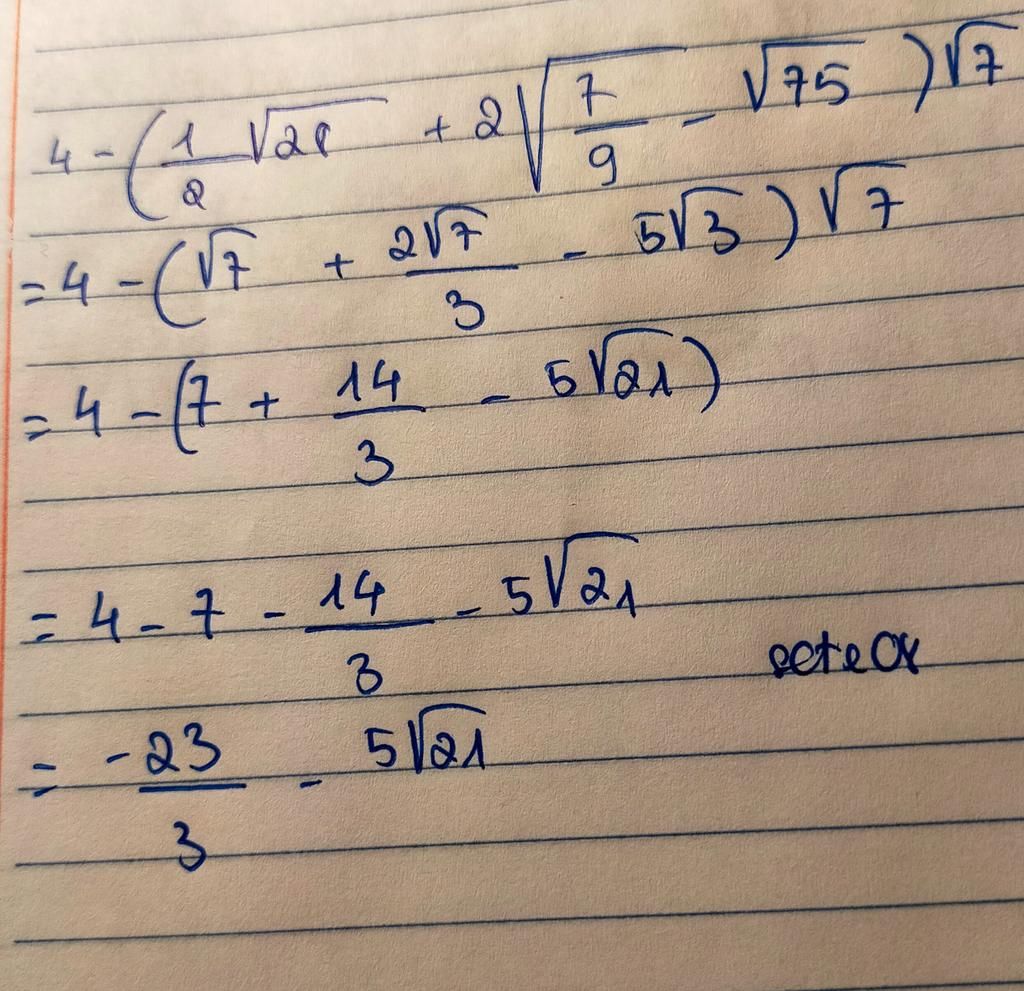 4 - ( 1/2 √28 + 2√(7/9) - √75 ) √7
= 4 - ( √7 + 2√7/3 - 5√3 ) √7
= 4 - ( 7 + 14/3 - 5√21 )
= 4 - 7 - 14/3 - 5√21
= -23/3 - 5√21